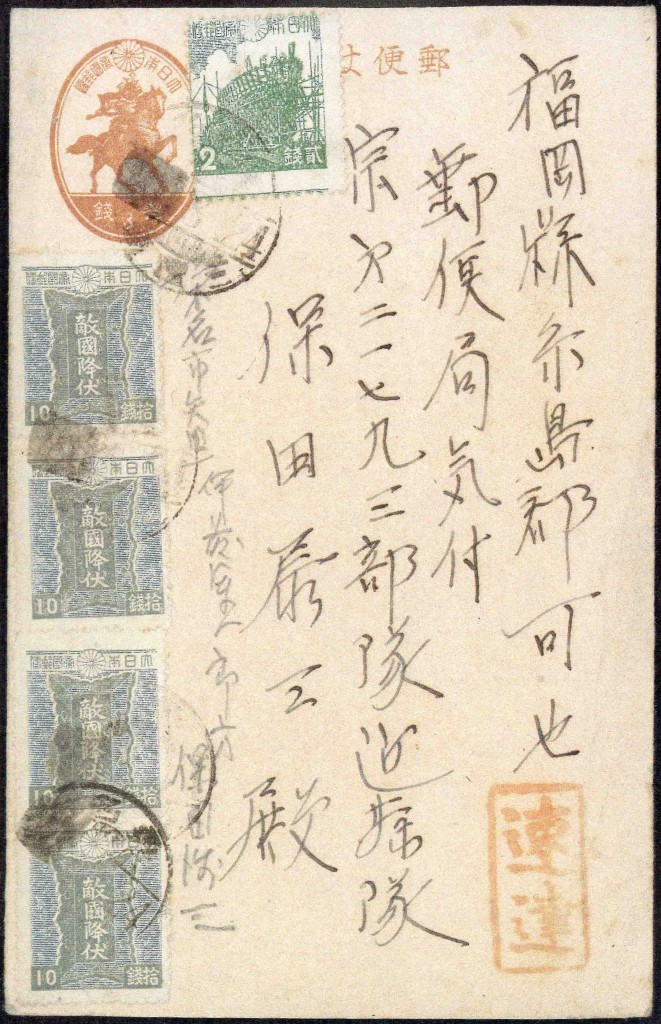 郵便は
大日本帝國郵便
錢
大日本帝國郵便
2
貳錢
福岡縣糸島郡可也
郵便局気付
宗第二一七九三部隊近藤隊
保田泰三殿
速達
大日本帝國郵便
敵國降伏
10
拾錢
大日本帝國郵便
敵國降伏
10
拾錢
大日本帝國郵便
敵國降伏
10
拾錢
大日本帝國郵便
敵國降伏
10
拾錢